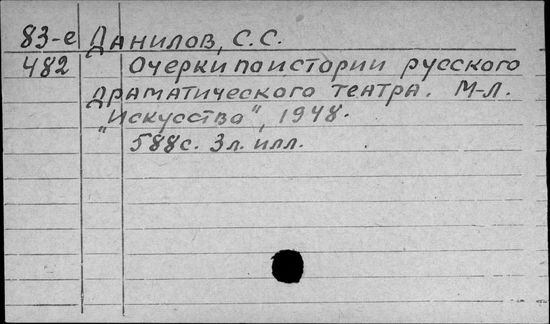 83-е Данилов, С.С.
482 Очерки по истории русского
драматического театра. М-Л.
"Искусство", 1948.
588с. 3л. илл.